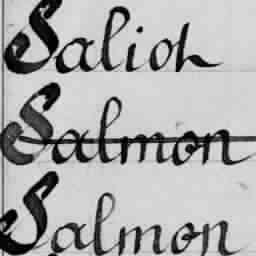 Salioh
Salmon
Salmon